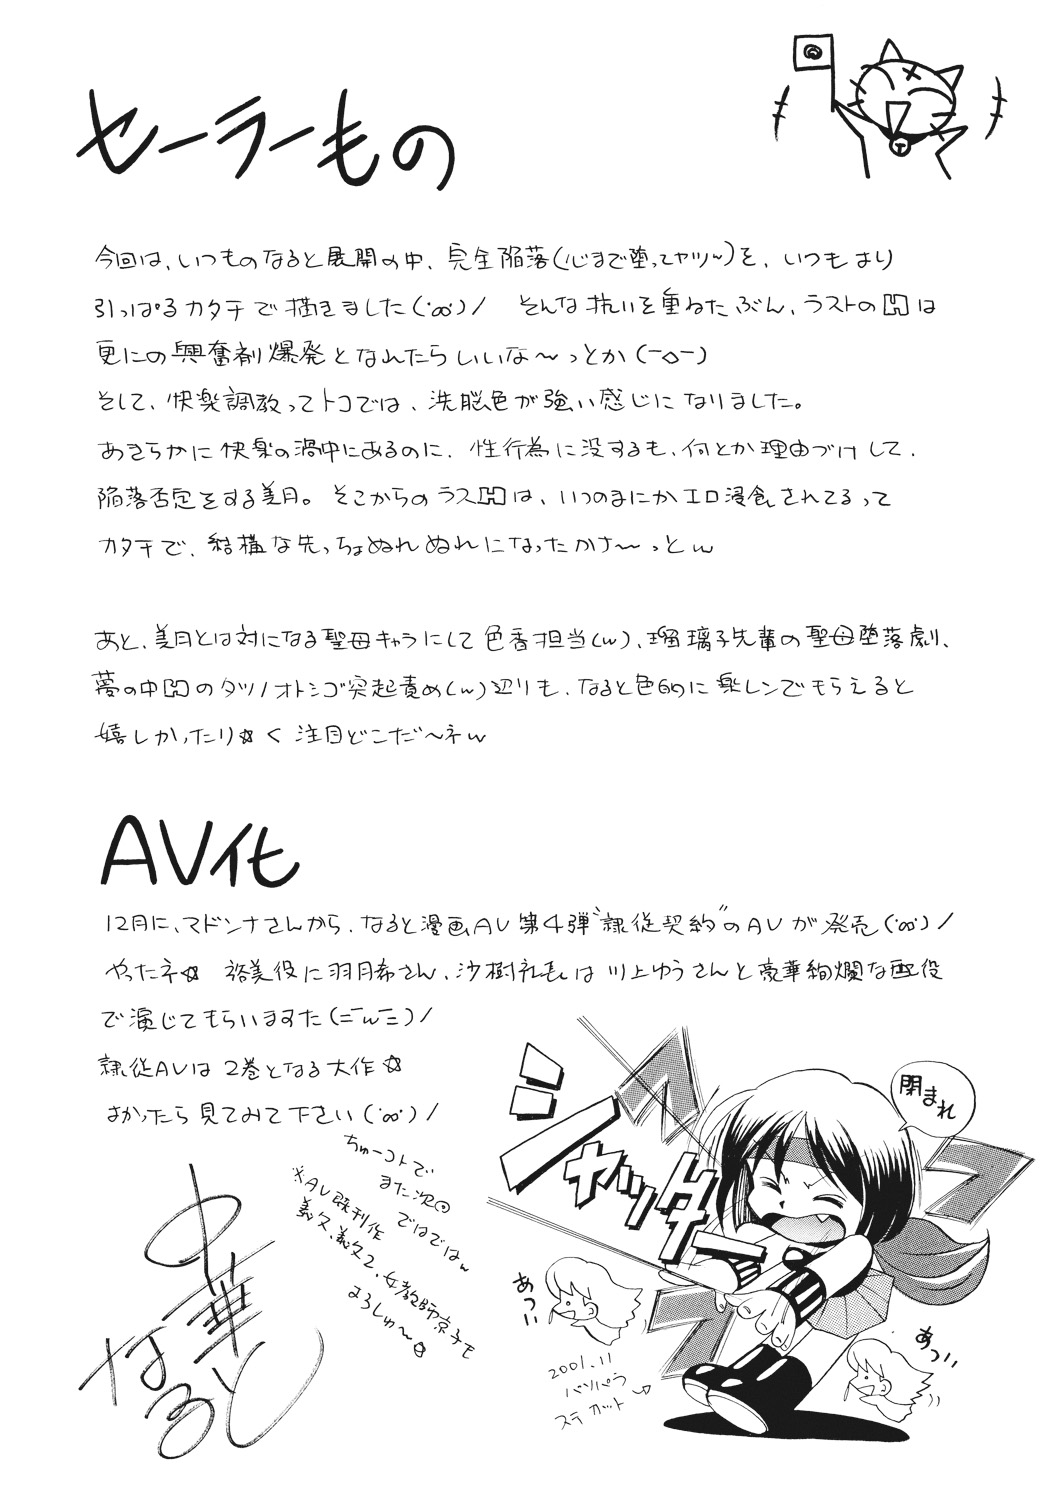 セーラーもの
今回は、いつものなると展開の中、完全陥落(心まで堕ってヤツ〜)を、いつもより
引っぱるカタチで描きました(･∞･)/ そんな抗いを重ねたぶん、ラストのHは
更にの興奮剤爆発となれたらいいな〜っとか(ー◇ー)
そして、快楽調教ってトコでは、洗脳色が強い感じになりました。
あきらかに快楽の渦中にあるのに、性行為に没するも、何とか理由づけして、
陥落否定をする美月。そこからのラスHは、いつのまにかエロ浸食されてるって
カタチで、結構な先っちょぬれぬれになったかさ〜っとw
あと、美月とは対になる聖母キャラにして色香担当(w)、瑠璃子先輩の聖母堕落劇、
夢の中Hのタツノオトシゴ突起責め(w)辺りも、なると色的に楽しンでもらえると
嬉しかったり☆く 注目どこだ〜ネw
AV化
12月に、マドンナさんから、なると漫画AV第4弾"隷従契約"のAVが発売(･∞･)/
やったネ☆ 裕美役に羽月希さん、沙樹礼美は川上ゆうさんと豪華絢爛な配役
で演じてもらいますた(=ーwー=)/
隷従AVは2巻となる大作☆
よかったら見てみて下さい(･∞･)/
ちゅーコトで
また次回
ではではw
※AV既刊作
義父、義父2、女教師京子も
よろしゅ〜☆
中華なると
シャッター
閉まれ
あっ‼
あっ‼
2001.11
バソパラ
ステカット